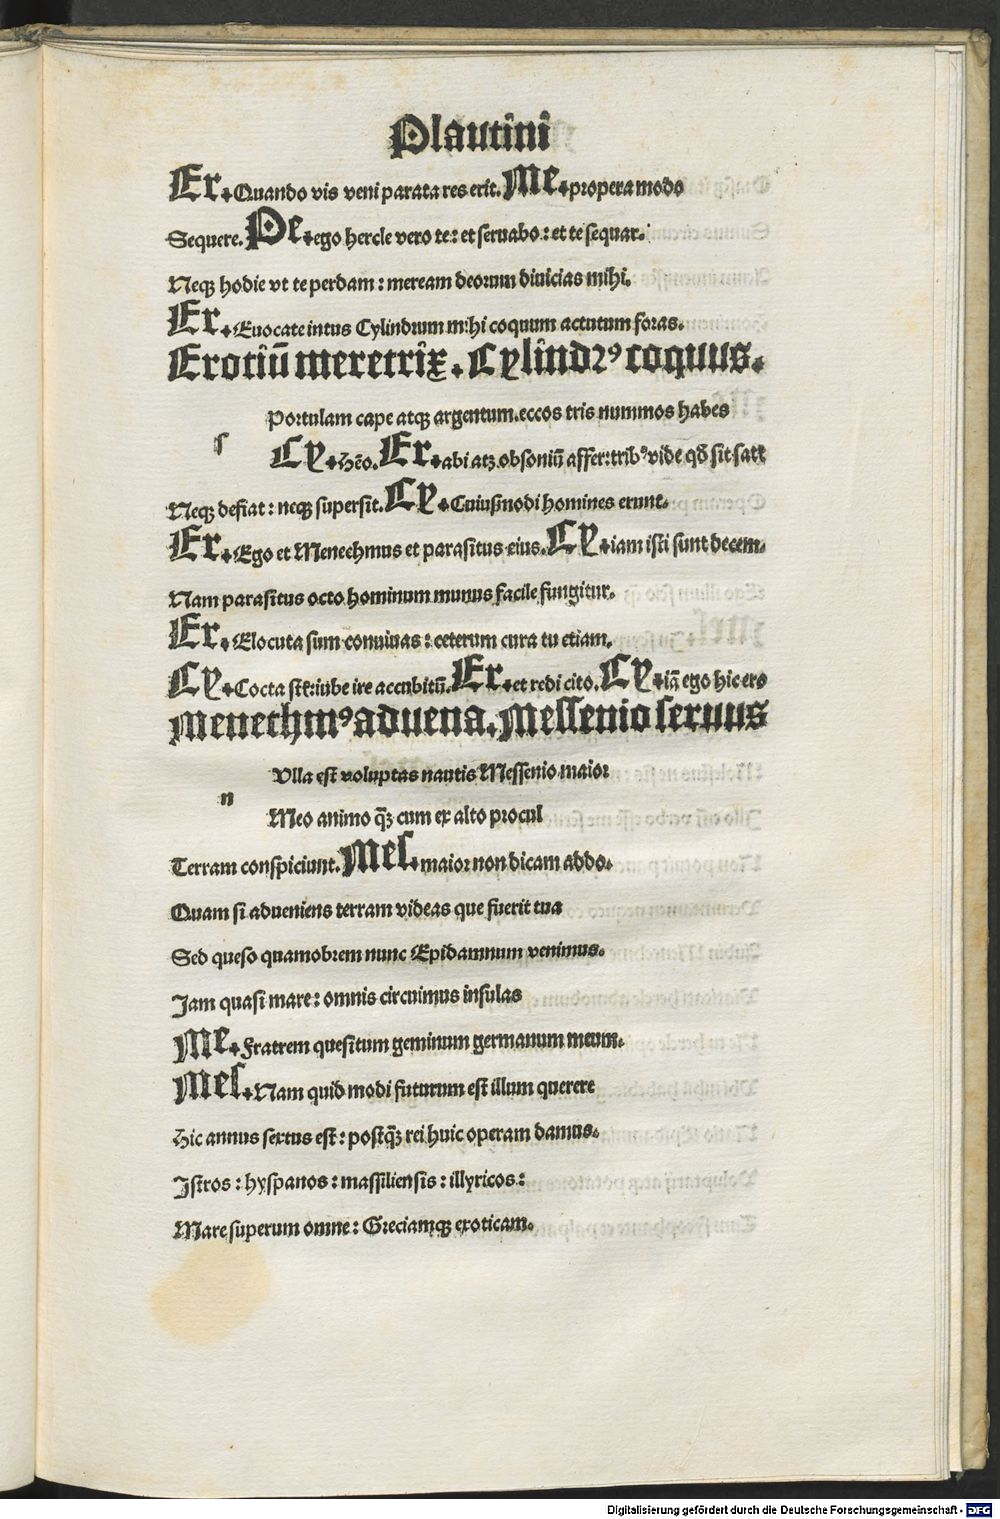 Plautini
Er. Quando vis veni parata res erit. Me. propera modo
Sequere. Pe. ego hercle vero te: et seruabo: et te sequar.
Neqꝫ hodie vt te perdam: meream deorum diuicias mihi.
Er. Euocate intus Cylindrum mihi coquum actutum foras.
Erotiū meretrix. Cylindrꝰ coquus.
Portulam cape atqꝫ argentum. eccos tris nummos habes
s
Cy. Hēo. Er. abi atqꝫ obsoniū affer: tribꝰ vide qđ sit satt
Neqꝫ defiat: neqꝫ supersit. Cy. Cuiußmodi homines erunt.
Er. Ego et Menechmus et parasitus eius. Cy. iam isti sunt decem.
Nam parasitus octo hominum munus facile fungitur.
Er. Elocuta sum conuiuas: ceterum cura tu etiam.
Cy. Cocta st̄: iube ire accubitū. Er. et redi cito. Cy. iā ego hic ero
Menechmꝰ aduena. Messenio seruus
Vlla est voluptas nautis Messenio maior
n
Meo animo q̄ꝫ cum ex alto procul
Terram conspiciunt. Mes. maior non dicam abdo.
Quam si adueniens terram videas que fuerit tua
Sed queso quamobrem nunc Epidamnum venimus.
Jam quasi mare: omnis circuimus insulas
Me. Fratrem quesitum geminum germanum meum.
Mes. Nam quid modi futurum est illum querere
Hic annus sextus est: postq̄ꝫ rei huic operam damus.
Jstros: hyspanos: massiliensis: illyricos:
Mare superum omne: Greciamqꝫ exoticam.
Digitalisierung gefördert durch die Deutsche Forschungsgemeinschaft - DFG